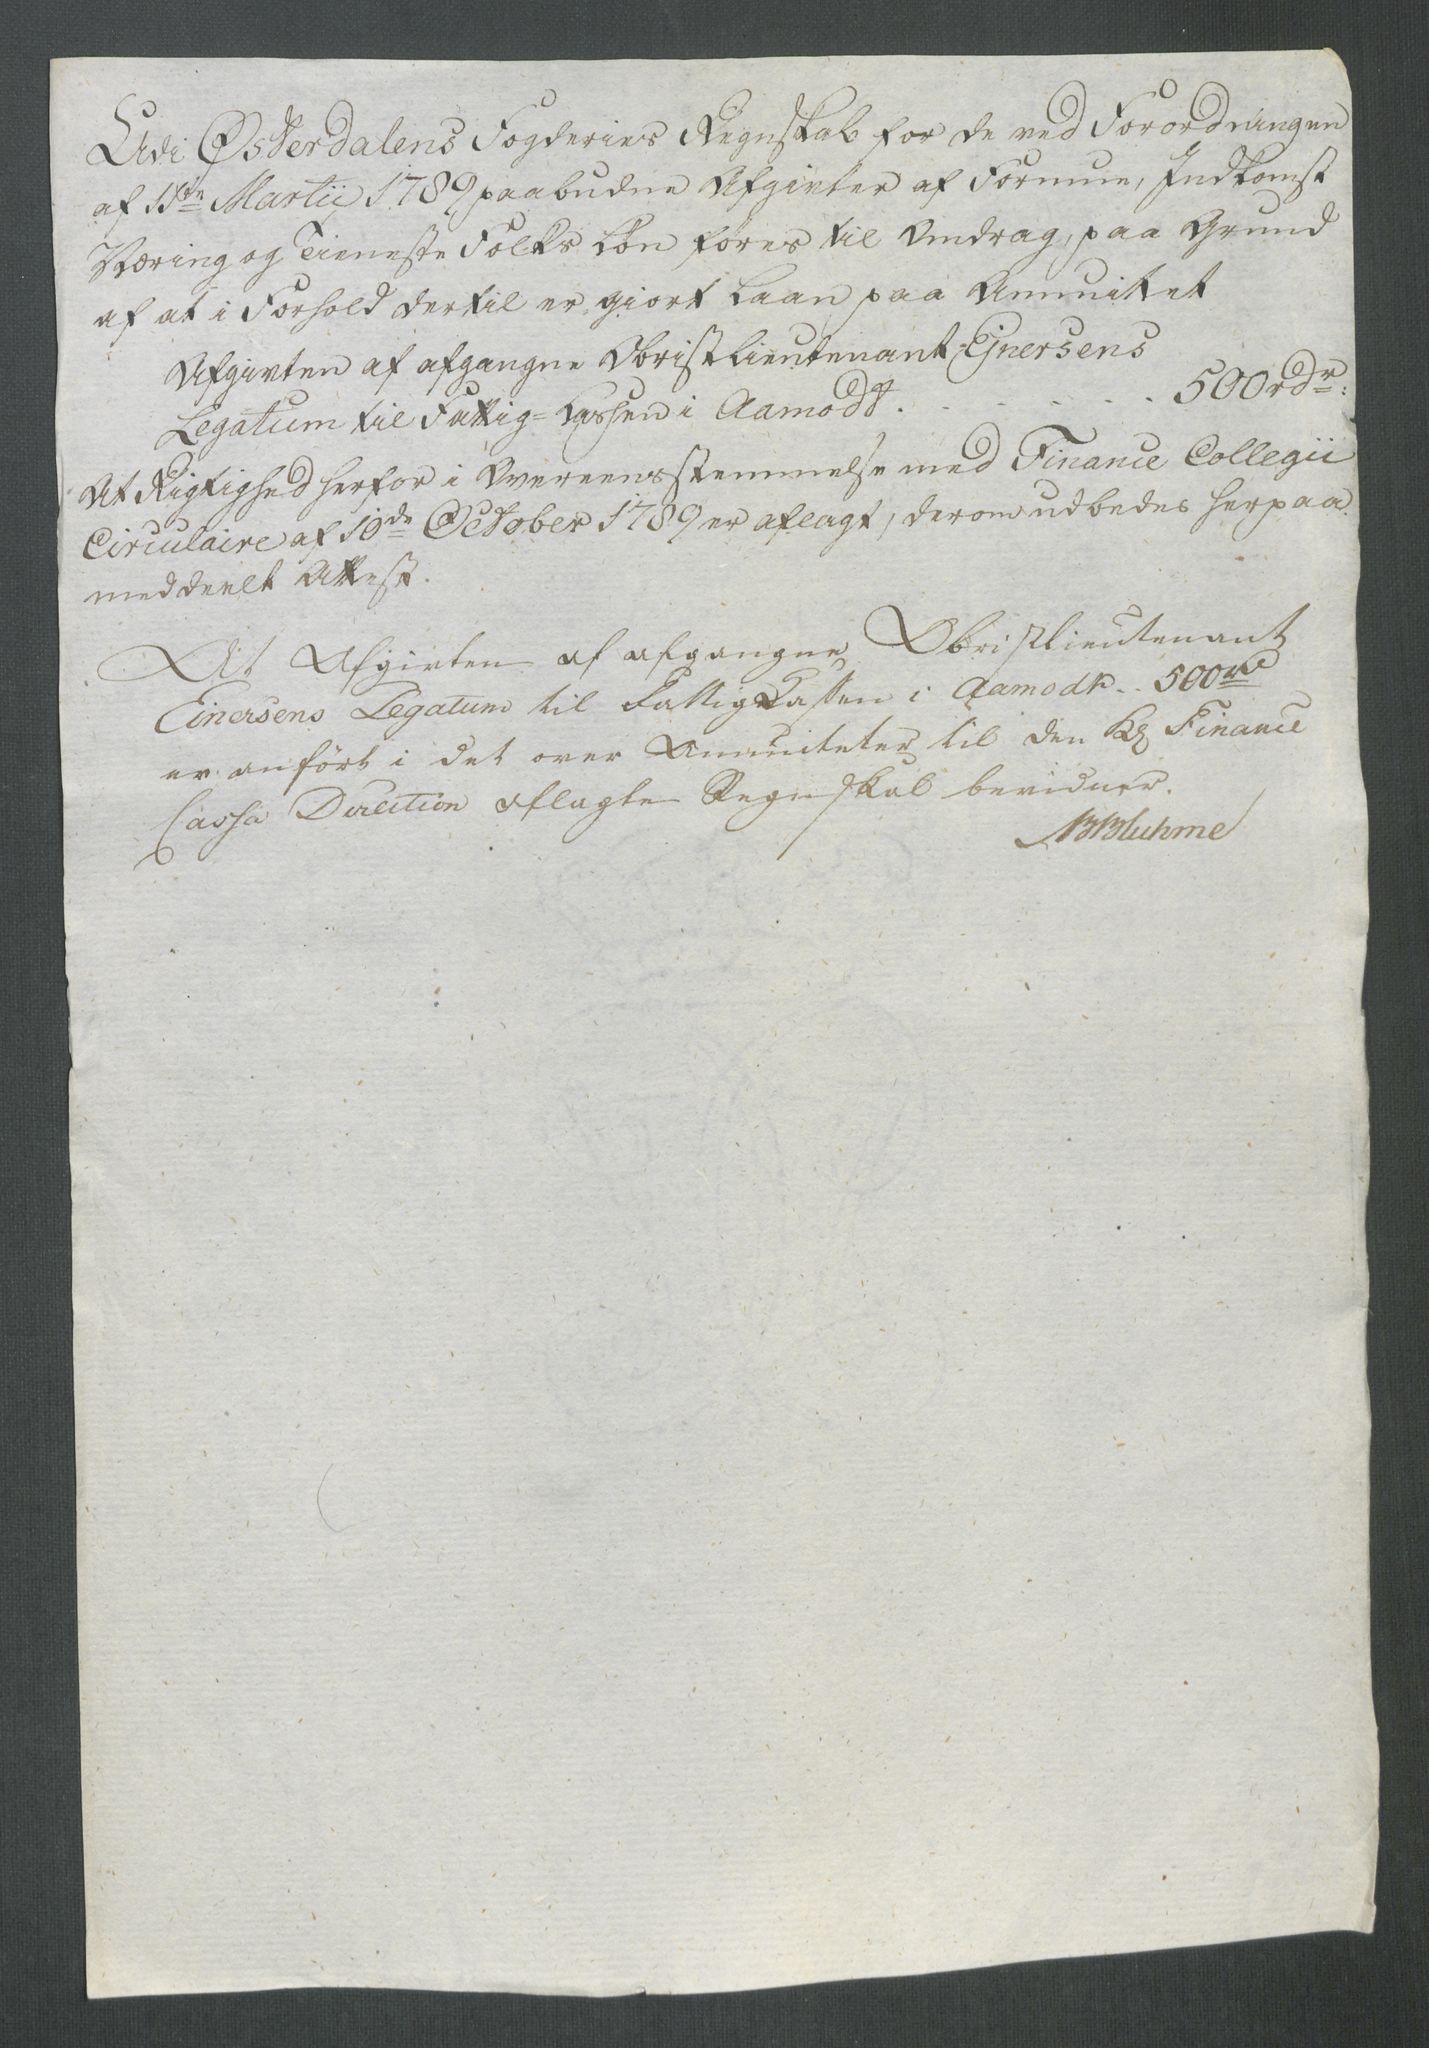 Udi Østerdalens Fogderies Regnskab for de ved Forordningen
af 11te Martij 1789 paabudne Afgivter af Formue, Indkomst
Næring og Tieneste Folks Løn føres til Undrag, paa Grund
af at i Forhold dertil er giort Laan paa Annuitet
Afgivten af afgangne Obristlieutenant Ejnersens
Legatum til Fattig=Cassen i Aamodt . . . . . . 500rdr:
At Rigtighed herfor i Overeensstemmelse med Finance Collegii
Circulaire af 10de October 1789 er aflagt, derom udbedes herpaa
meddeelt Attest.
At Afgivten af afgangne Obristlieutenant
Einersens Legatum til Fattig Kassen i Aamodt .. 500rd
er anført i det over Annuiteter til den Kgl Finance
Cassa Direction aflagte Regnskab bevidner.
Bluhme